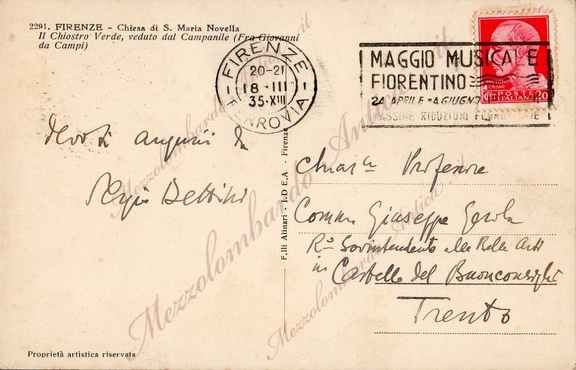 2291. FIRENZE - Chiesa di S. Maria Novella
Il Chiostro Verde, veduto dal Campanile (Fra Giovanni
da Campi)
FIRENZE
20-21
18 - III
35 • XIII
FERROVIA
MAGGIO MUSICALE
FIORENTINO
24 APRILE - 4 GIUGNO
MASSIME RIDUZIONI FERROVIARIE
POSTE
ITALIANE
20
Devoti auguri da
Sergio Bettini
F.lli Alinari - I.D.E.A. - Firenze
Chiar.
Professore
Comm. Giuseppe Gerola
R° Sovrintendente alle Belle Arti
in Castello del Buonconsiglio
Trento
Proprietà artistica riservata
Mezzolombardo Antica
Mezzolombardo Antica